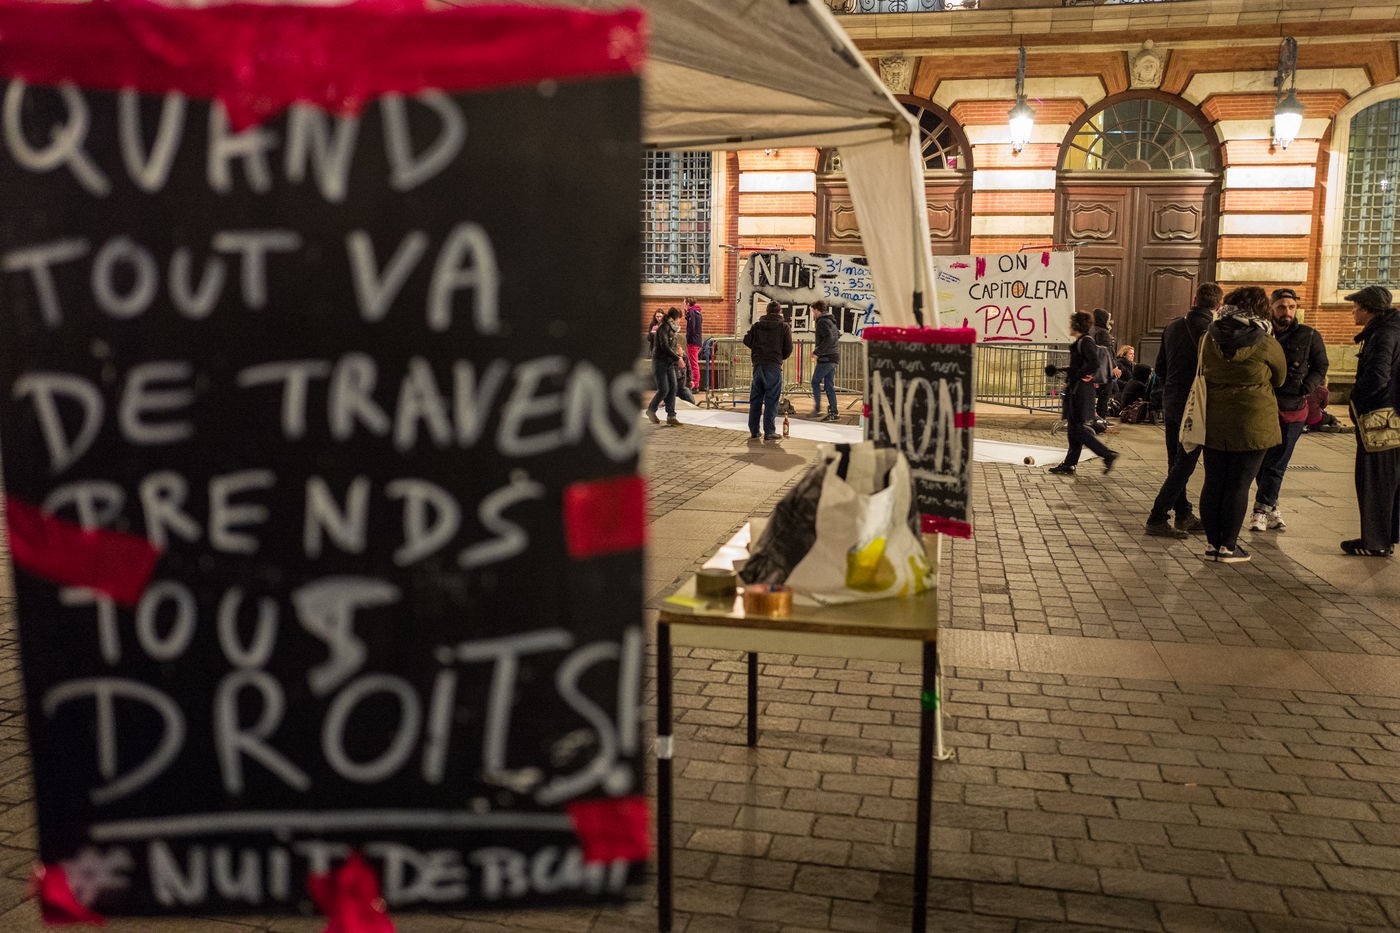 QUAND
TOUT VA
DE TRAVERS
PRENDS
TOUS
DROiTS!
#NUiT DEBOUT
NUiT
DEBOUT
31 mars
35 m
39 mars
4
ON
CAPiTOLERA
PAS!
non non non
non non non
NON
non non
non non non